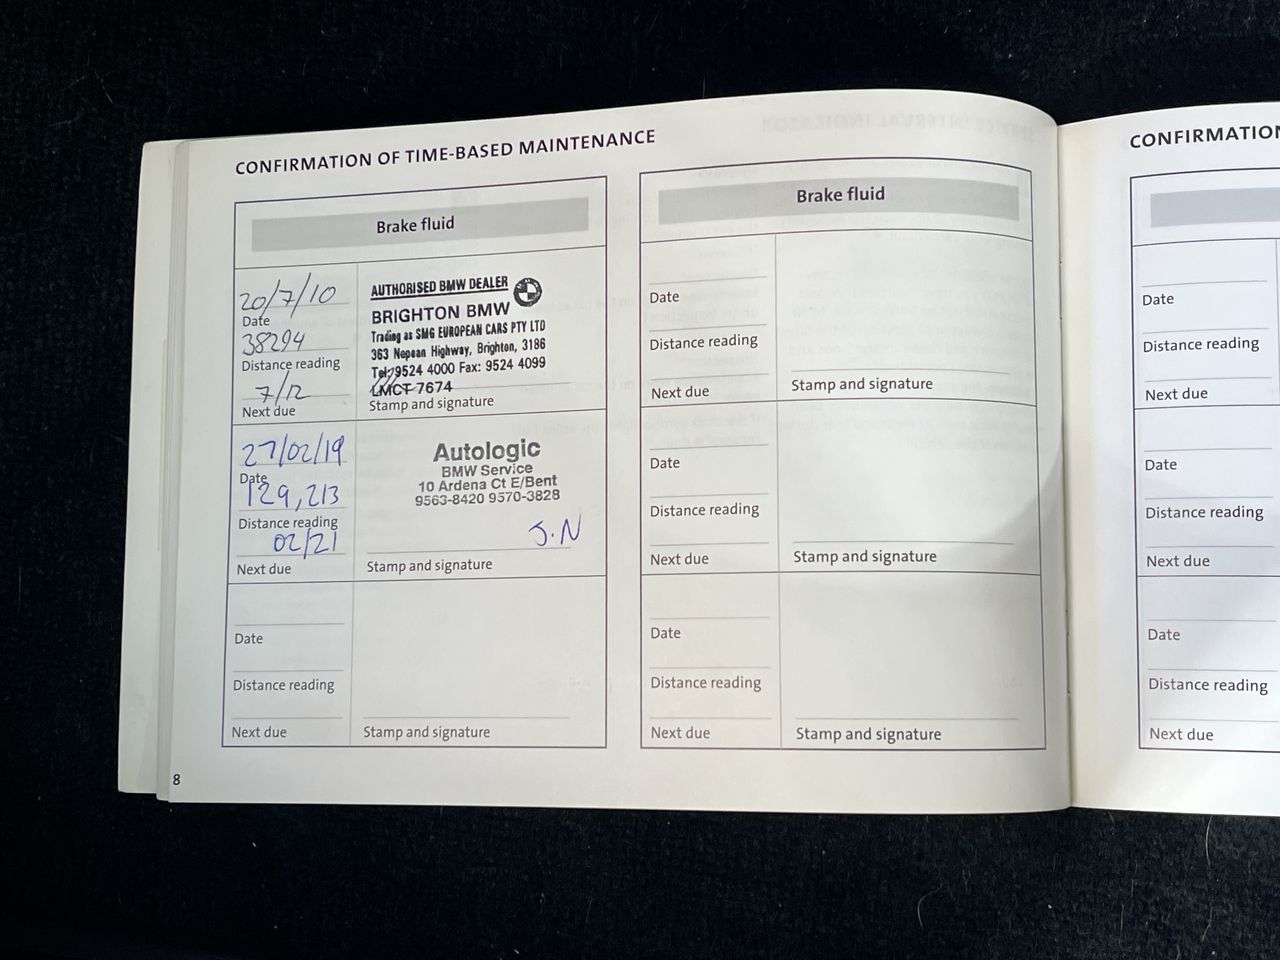 CONFIRMATION OF TIME-BASED MAINTENANCE
Brake fluid
20/7/10
Date
38294
Distance reading
7/12
Next due
AUTHORISED BMW DEALER
BRIGHTON BMW
Trading as SMG EUROPEAN CARS PTY LTD
363 Nepean Highway, Brighton, 3186
Tel: 9524 4000 Fax: 9524 4099
LMCT 7674
Stamp and signature
27/02/19
Date
129,213
Distance reading
02/21
Next due
Autologic
BMW Service
10 Ardena Ct E/Bent
9563-8420 9570-3828
J.N
Stamp and signature
Date
Distance reading
Next due
Stamp and signature
8
Brake fluid
Date
Distance reading
Next due
Stamp and signature
Date
Distance reading
Next due
Stamp and signature
Date
Distance reading
Next due
Stamp and signature
CONFIRMATION
Date
Distance reading
Next due
Date
Distance reading
Next due
Date
Distance reading
Next due